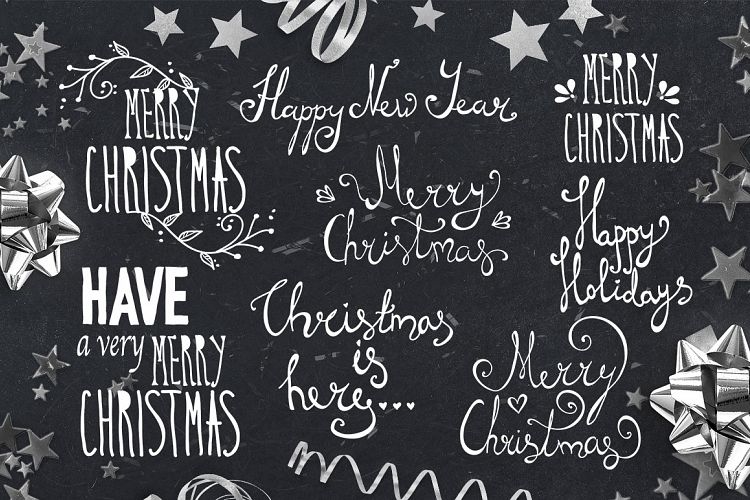 MERRY
CHRISTMAS
Happy New Year
MERRY
CHRISTMAS
Merry
Christmas
Happy
Holidays
HAVE
a very MERRY
CHRISTMAS
Christmas
is
here...
Merry
Christmas